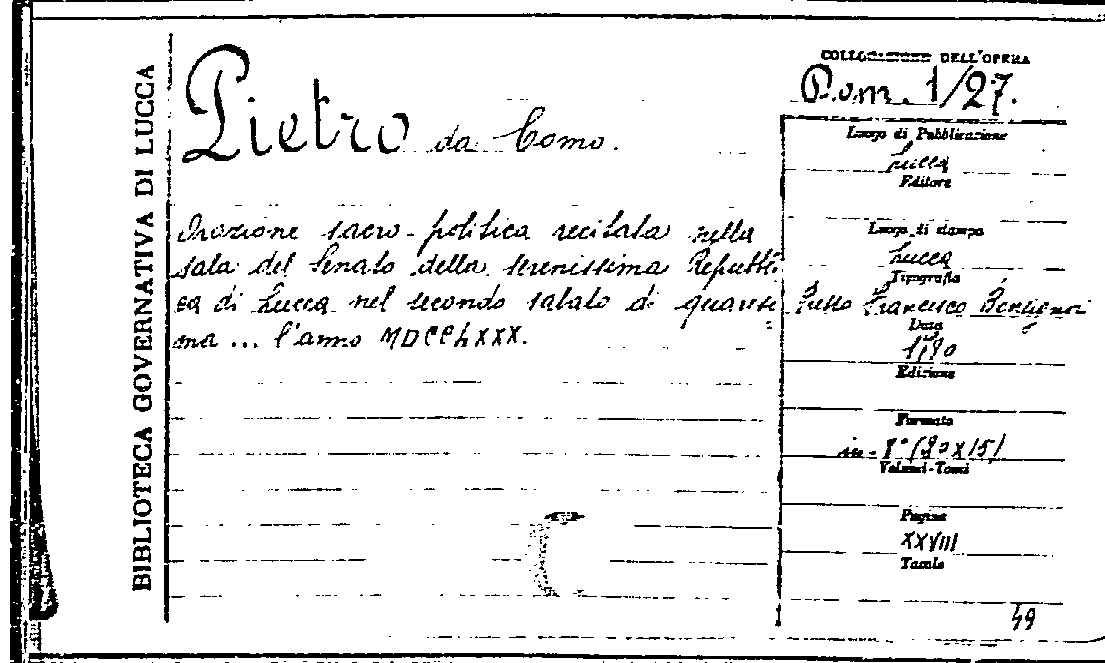 BIBLIOTECA GOVERNATIVA DI LUCCA
Pietro da Como.
Orazione sacro-politica recitata nella
sala del Senato della serenissima Repubbli
ca di Lucca nel secondo sabato di quaresi
ma ... l'anno MDCCLXXX.
COLLOCAZIONE DELL'OPERA
P.om. 1/27.
Luogo di Pubblicazione
Lucca
Editore
Luogo di stampa
Lucca
Tipografia
Presso Francesco
Data
Edizione
Formato
in-8°
Volumi-Tomi
Pagine
XXVIII
Tavole
49